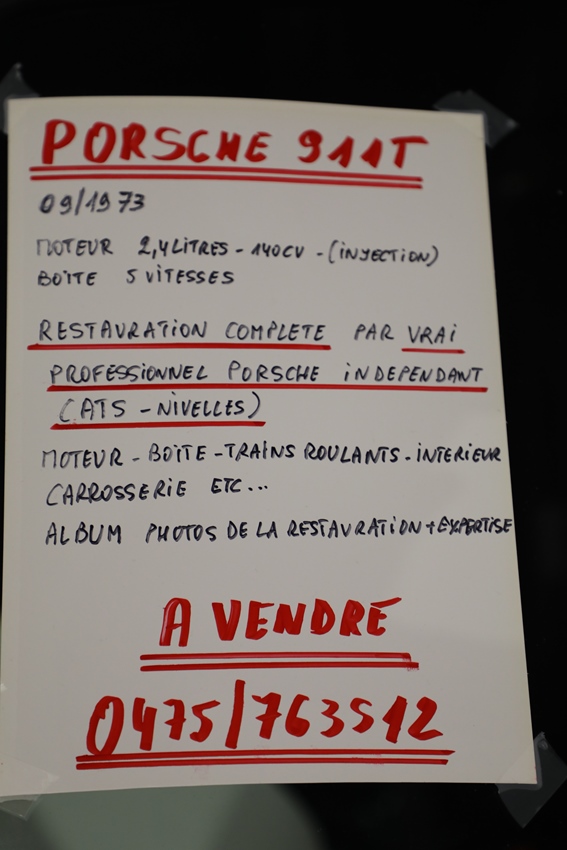 PORSCHE 911T
09/1973
MOTEUR 2,4 LITRES - 140CV - (INJECTION)
BOÎTE 5 VITESSES
RESTAURATION COMPLETE PAR VRAI
PROFESSIONNEL PORSCHE INDEPENDANT
(ATS - NIVELLES)
MOTEUR - BOÎTE - TRAINS ROULANTS - INTERIEUR
CARROSSERIE ETC...
ALBUM PHOTOS DE LA RESTAURATION + EXPERTISE
A VENDRE
0475/763512